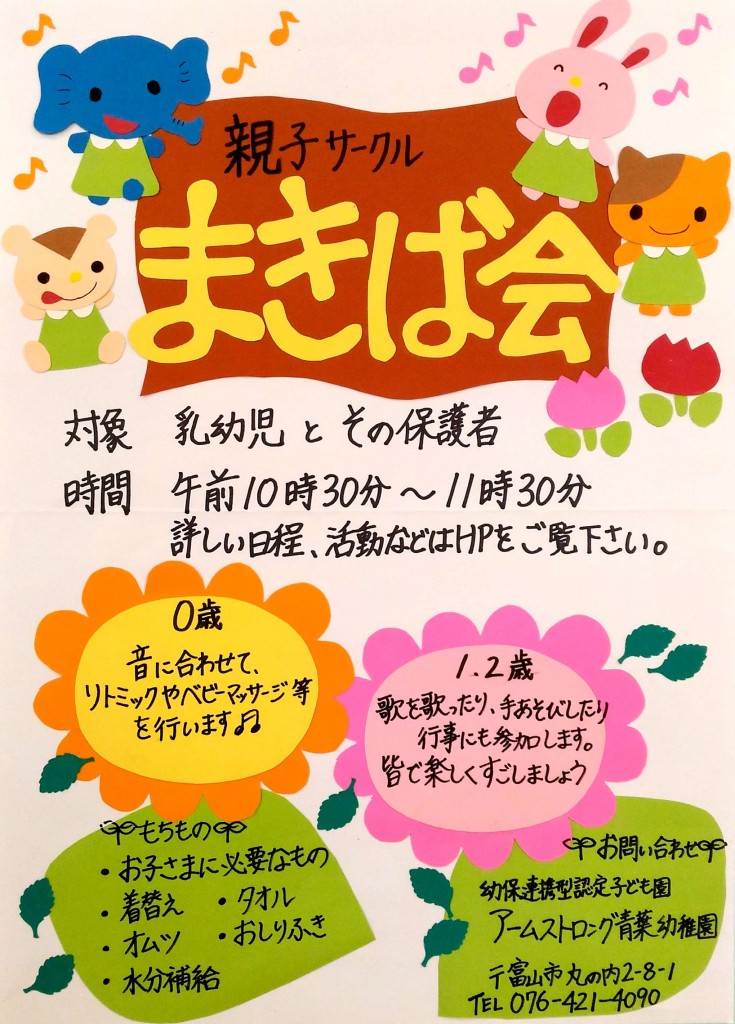 親子サークル
まきば会
対象 乳幼児とその保護者
時間 午前10時30分〜11時30分
詳しい日程、活動などはHPをご覧下さい。
0歳
音に合わせて、
リトミックやベビーマッサージ等
を行います♫
1.2歳
歌を歌ったり、手あそびしたり
行事にも参加します。
皆で楽しくすごしましょう
もちもの
・お子さまに必要なもの
・着替え ・タオル
・オムツ ・おしりふき
・水分補給
お問い合わせ
幼保連携型認定子ども園
アームストロング青葉幼稚園
〒富山市丸の内2-8-1
TEL 076-421-4090